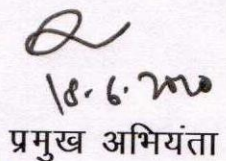 18.6.2020
प्रमुख अभियंता